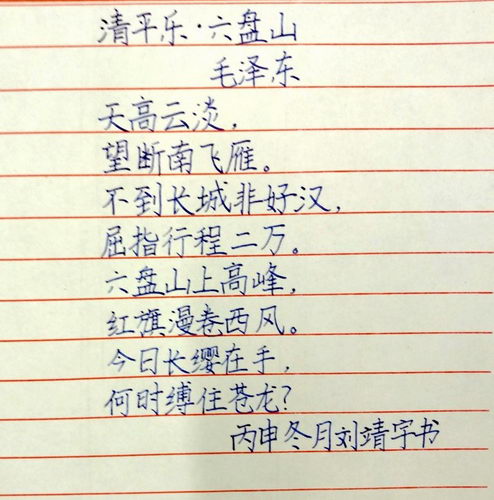 清平乐·六盘山
毛泽东
天高云淡，
望断南飞雁。
不到长城非好汉，
屈指行程二万。
六盘山上高峰，
红旗漫卷西风。
今日长缨在手，
何时缚住苍龙？
丙申冬月刘靖宇书